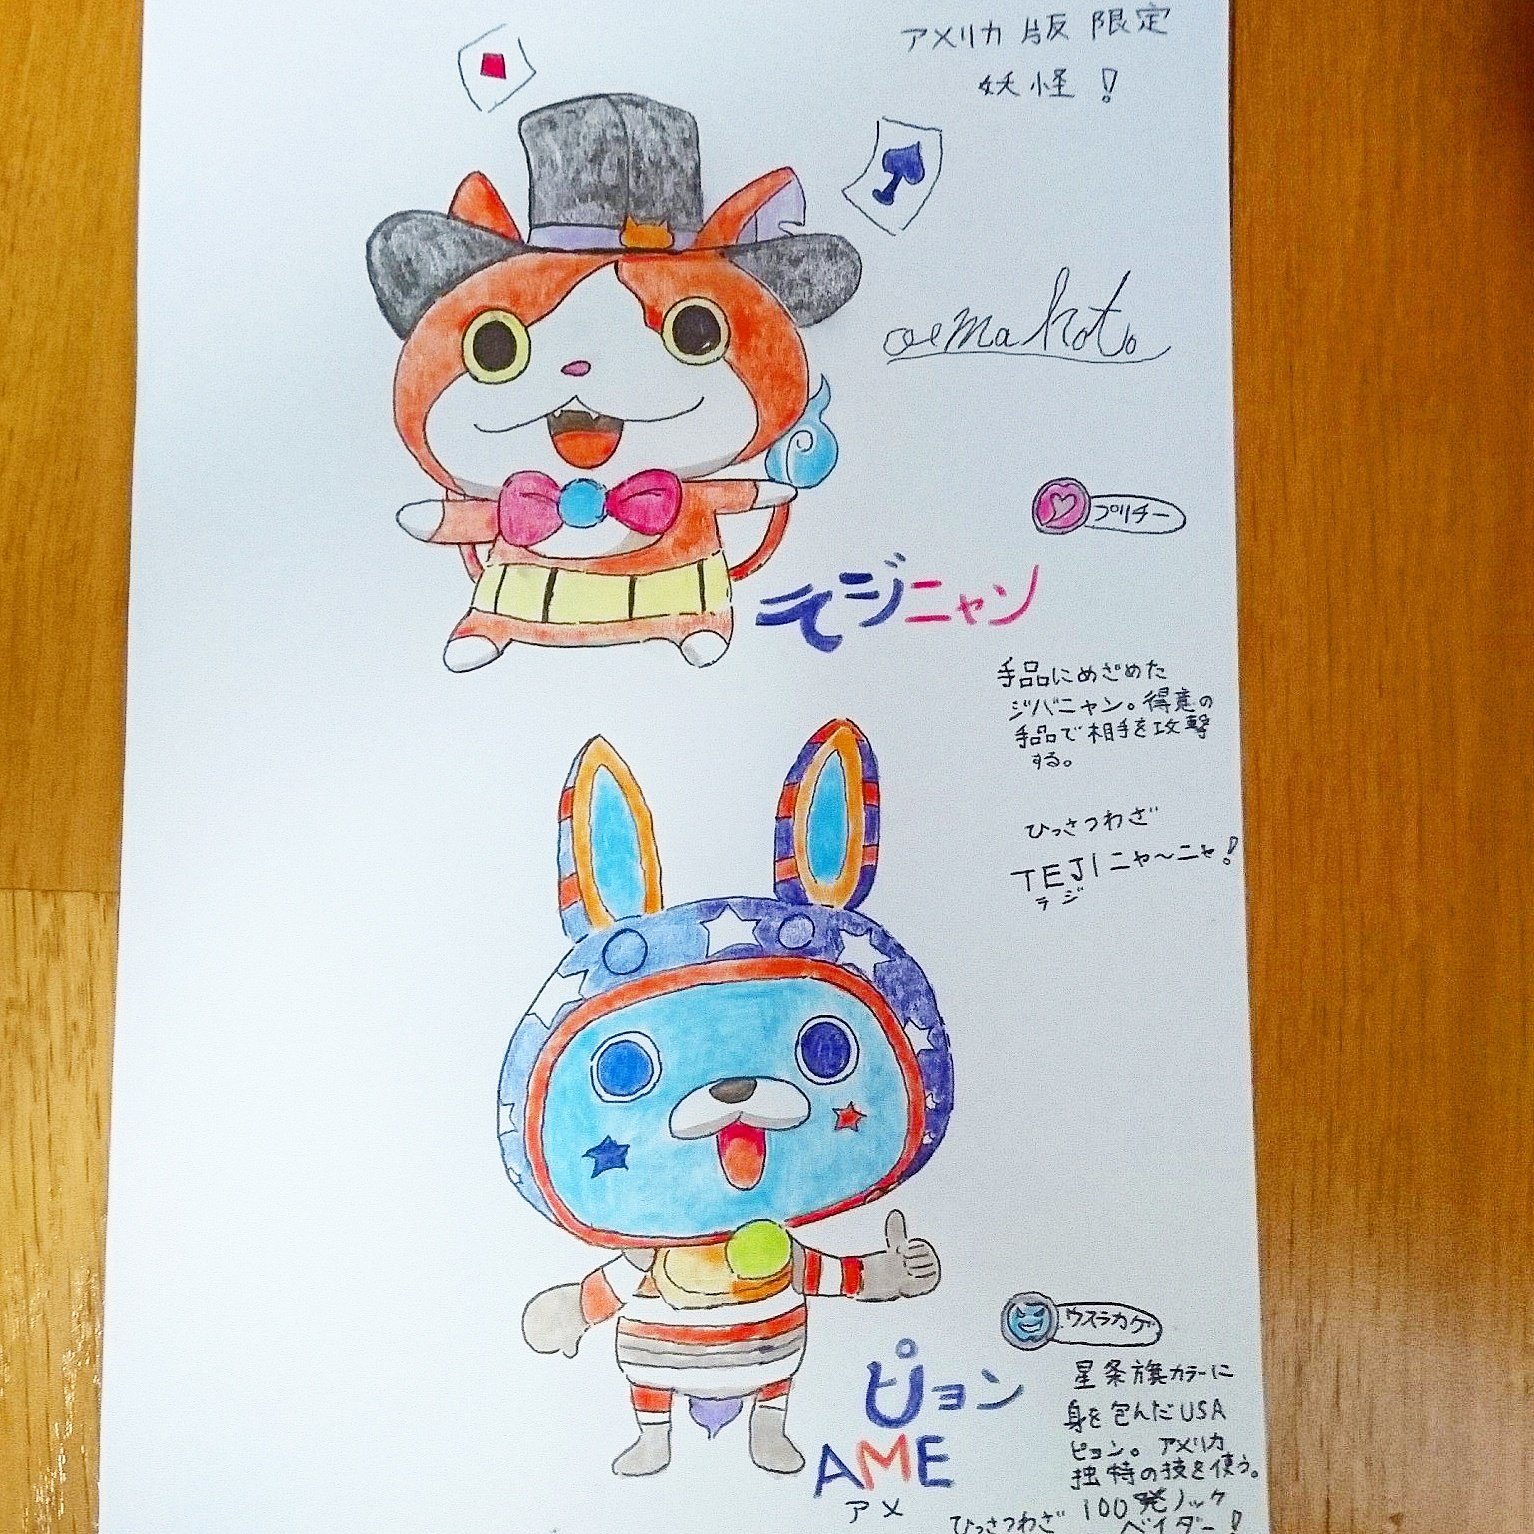 アメリカ版限定
妖怪!
oemakoto
プリチー
テジニャン
手品にめざめた
ジバニャン。得意の
手品で相手を攻撃
する。
ひっさつわざ
TEJIニャ〜ニャ!
テジ
ウスラカゲ
ピョン
AME
アメ
星条旗カラーに
身を包んだUSA
ピョン。アメリカ
独特の技を使う。
ひっさつわざ 100発ノック
ベイダー!